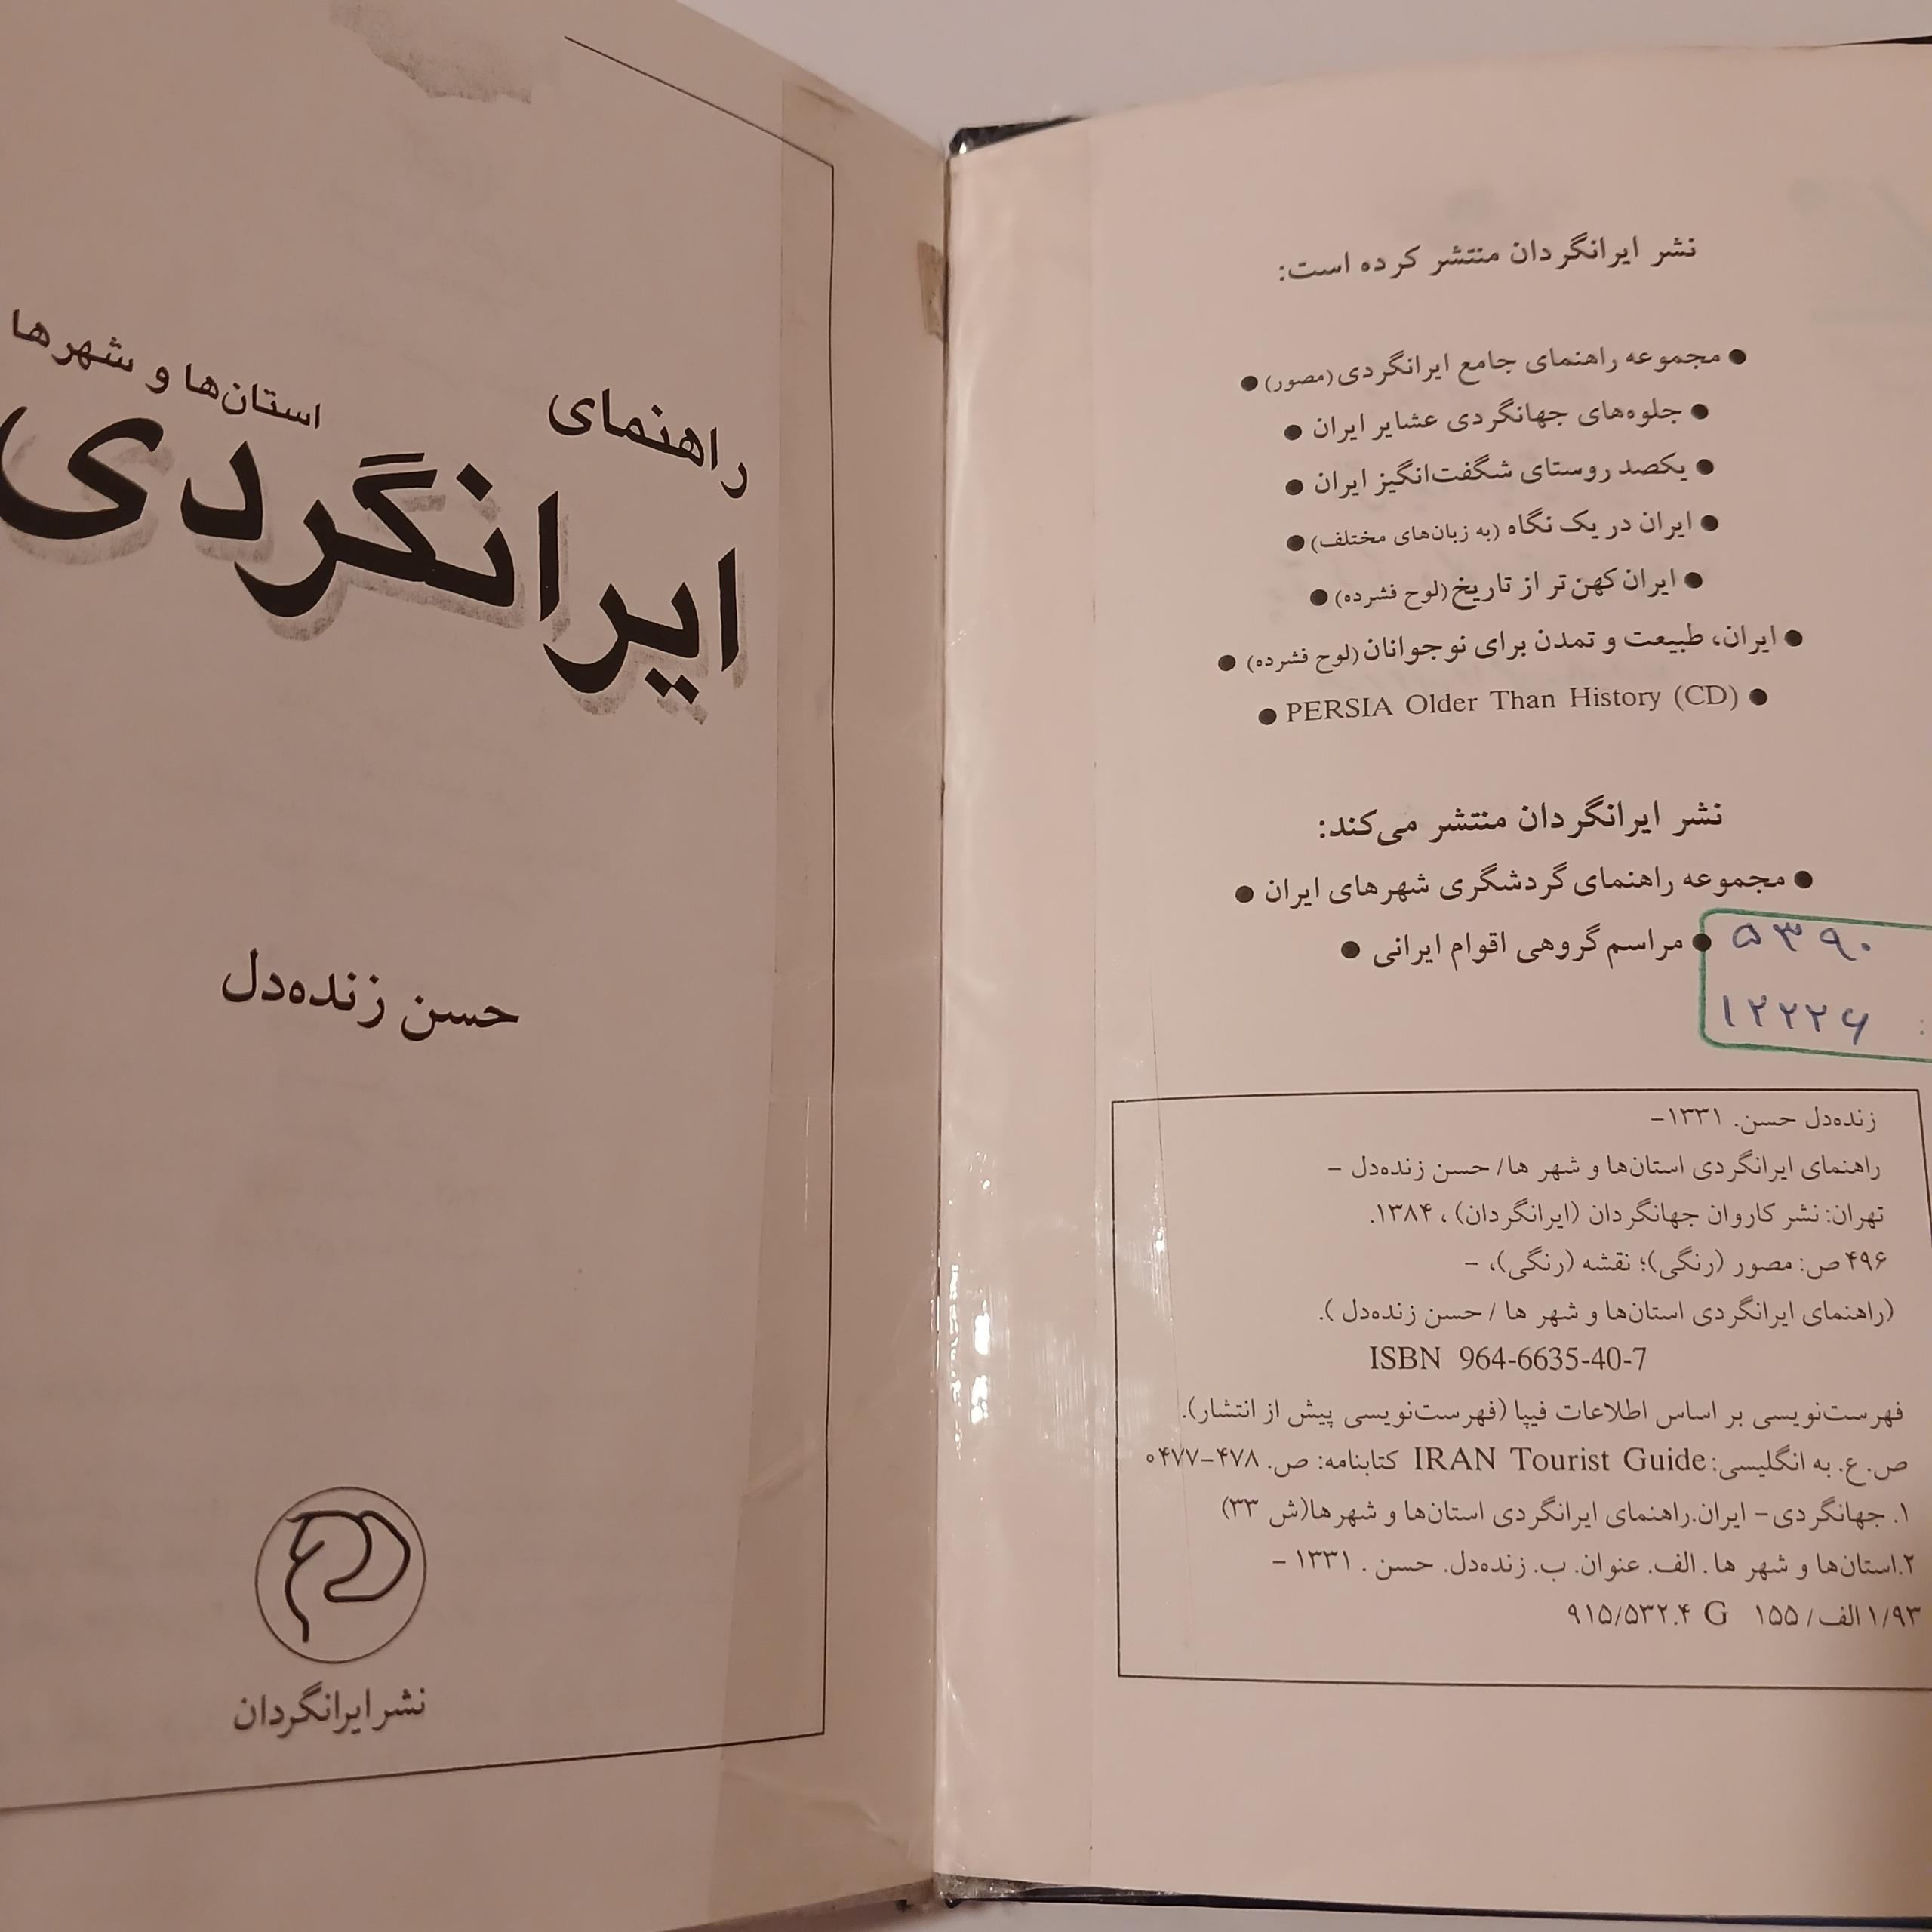 نشر ایرانگردان منتشر کرده است:
● مجموعه راهنمای جامع ایرانگردی (مصور) ●
● جلوه‌های جهانگردی عشایر ایران ●
● یکصد روستای شگفت‌انگیز ایران ●
● ایران در یک نگاه (به زبان‌های مختلف) ●
● ایران کهن‌تر از تاریخ (لوح فشرده) ●
● ایران، طبیعت و تمدن برای نوجوانان (لوح فشرده) ●
● PERSIA Older Than History (CD) ●
نشر ایرانگردان منتشر می‌کند:
● مجموعه راهنمای گردشگری شهرهای ایران ●
● مراسم گروهی اقوام ایرانی ●
۵۳۹۰
۱۲۲۲۶
زنده‌دل حسن. ۱۳۳۱-
راهنمای ایرانگردی استان‌ها و شهر ها/ حسن زنده‌دل -
تهران: نشر کاروان جهانگردان (ایرانگردان)، ۱۳۸۴.
۴۹۶ ص: مصور (رنگی)؛ نقشه (رنگی)، -
(راهنمای ایرانگردی استان‌ها و شهر ها / حسن زنده‌دل ).
ISBN 964-6635-40-7
فهرست‌نویسی بر اساس اطلاعات فیپا (فهرست‌نویسی پیش از انتشار).
ص.ع. به انگلیسی: IRAN Tourist Guide کتابنامه: ص. ۴۷۸-۴۷۷۰
۱. جهانگردی- ایران.راهنمای ایرانگردی استان‌ها و شهرها(ش ۳۳)
۲.استان‌ها و شهر ها. الف. عنوان. ب. زنده‌دل. حسن . ۱۳۳۱ -
۱/۹۳ الف/ ۱۵۵ G ۹۱۵/۵۳۲.۴
راهنمای
استان‌ها و شهرها
ایرانگردی
حسن زنده‌دل
نشر ایرانگردان